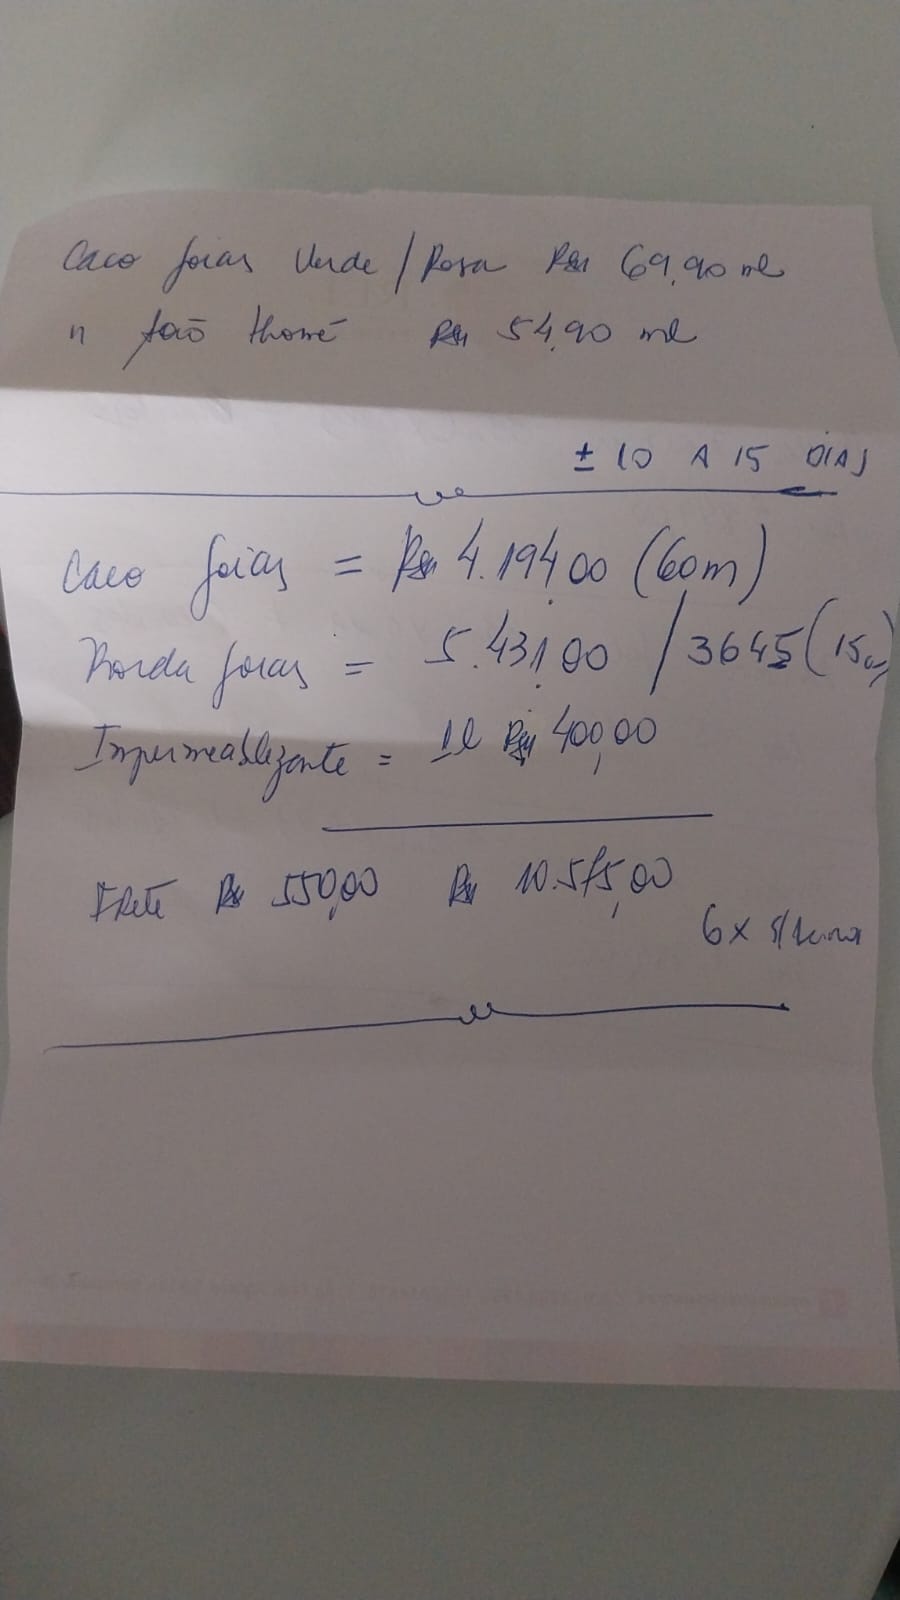 Caco Goias Verde / Rosa R$ 69,90 m²
" São Thomé R$ 54,90 m²
± 10 A 15 DIAS
Caco Goias = R$ 4.194,00 (60m)
Borda Goias = 5.431,00 / 3645 (15cm)
Impermeablizante = 1l R$ 400,00
FRete R$ 550,00 R$ 10.575,00
6x s/